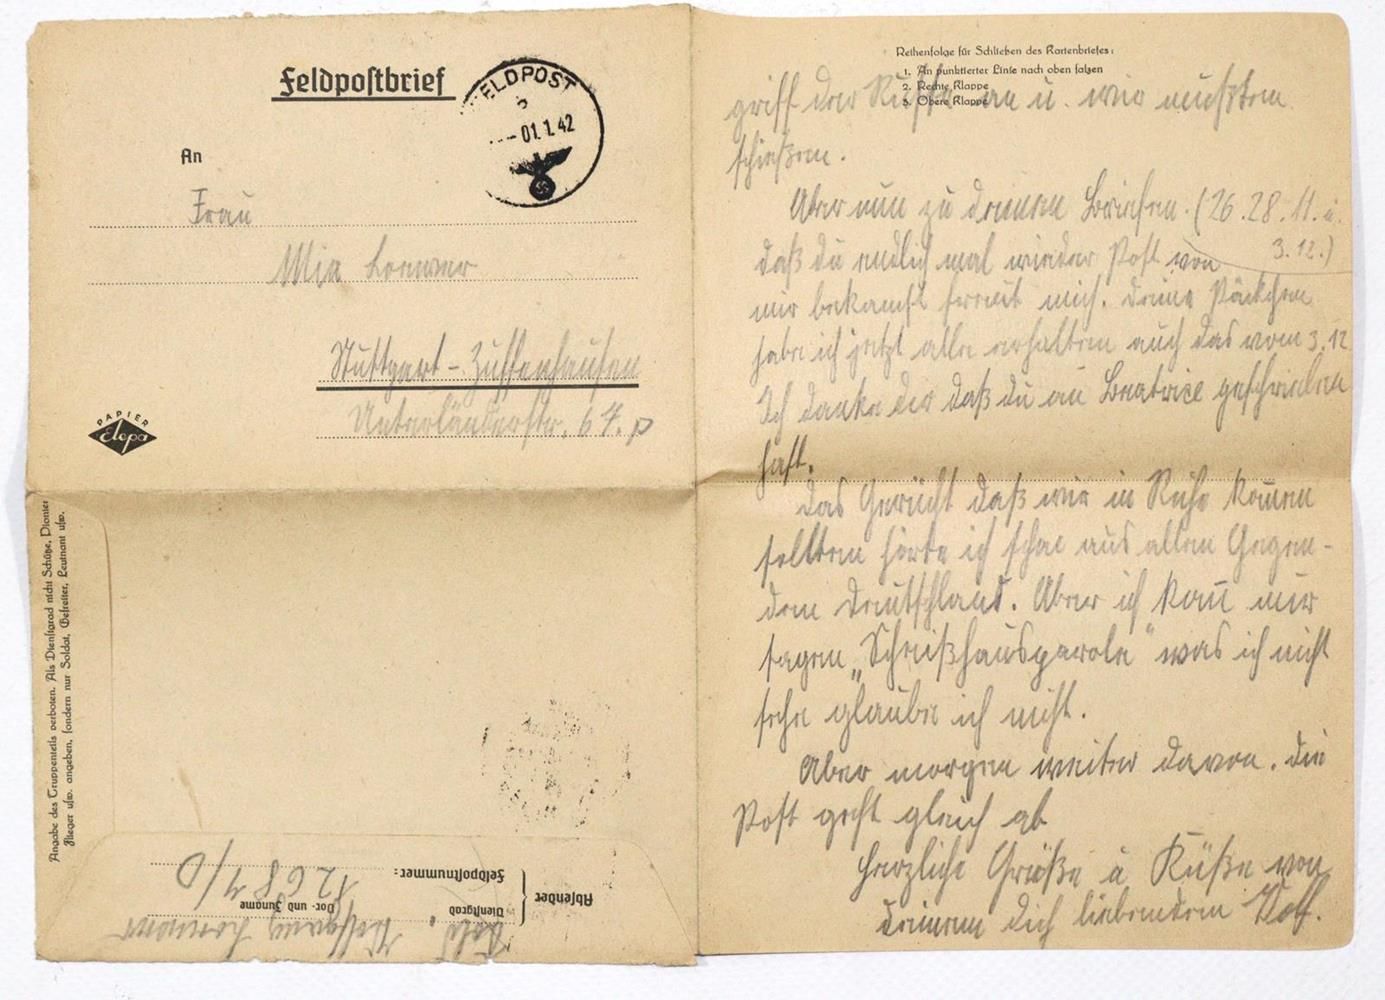 Feldpostbrief
FELDPOST
b
-- 01.1.42
An
Frau
Mia Loewer
Stuttgart - Zuffenhausen
Unterländerstr. 67. p
PAPIER
Elepa
Angabe des Truppenteils verboten. Als Dienstgrad nicht Schütze, Pionier
Flieger usw. angeben, sondern nur Soldat, Gefreiter, Leutnant usw.
Absender
Dienstgrad
Vor- und Zuname
Wolfgang Loewer
Feldpostnummer:
12687/D
Reihenfolge für Schließen des Kartenbriefes:
1. An punktierter Linie nach oben falzen
2. Rechte Klappe
3. Obere Klappe
griff der Russe an u. wir mußten
schießen.
Aber nun zu deinen Briefen. (26.28.11. u.
3.12.)
daß du endlich mal wieder Post von
mir bekamst freut mich. Deine Päckchen
habe ich jetzt alle erhalten auch das vom 3.12
Ich danke dir daß du an Beatrice geschrieben
hast.
Das Gerücht daß wir in Ruhe kommen
sollten hörte ich schon aus allen Gegen-
den Deutschlands. Aber ich kann nur
sagen „Scheißhausparole" was ich nicht
sehe glaube ich nicht.
Aber morgen weiter davon. Die
Post geht gleich ab
Herzliche Grüße u Küße von
Deinem Dich liebendem Wolf.